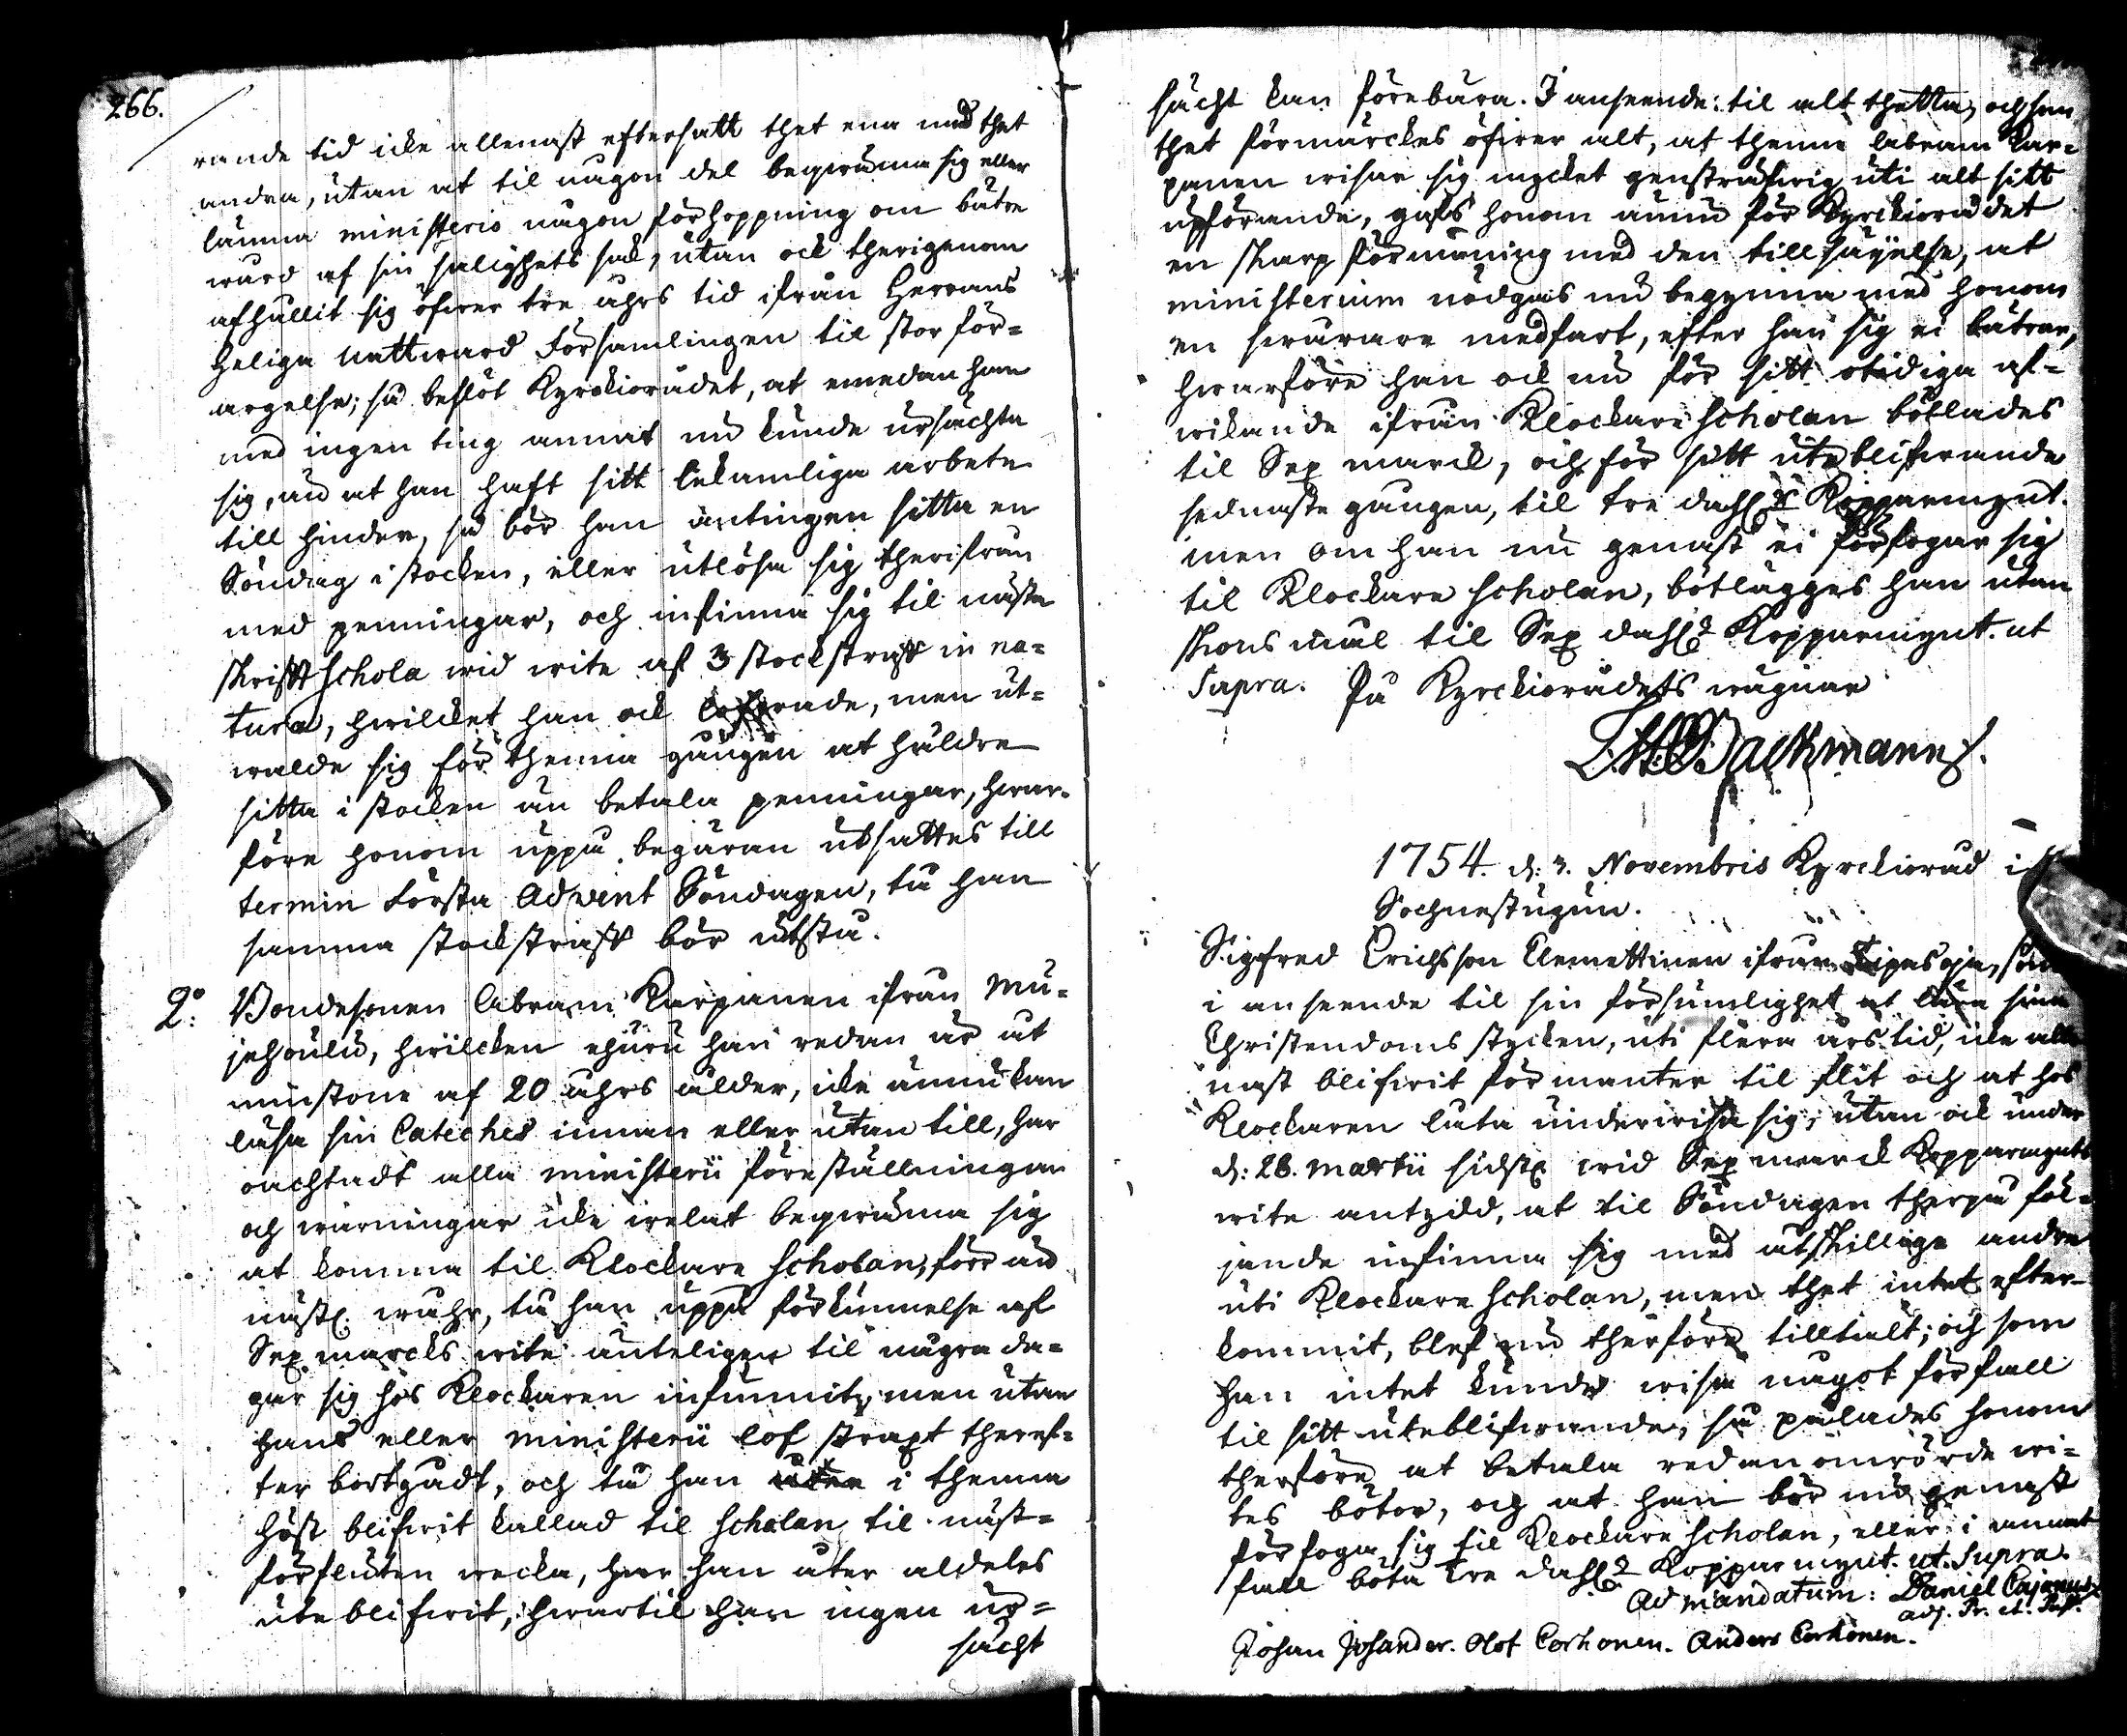 266.
rande tid icke allenast eftersatt thet ena med thet
andra, utan at til någon del beqwäma sig eller
lämna ministerio någon förhoppning om bätre
wård af sin salighets sak, utan ock therigenom
afhållit sig öfwer tre åhrs tid ifrån Herrans
Heliga Nattward Församlingen til stor för-
argelse; så beslöt Kyrckiorådet, at emedan han
med ingen ting annat nu kunde ursächta
sig, än at han haft sitt lekamliga arbete
till hinder, så bör han äntingen sitta en
Söndag i stocken, eller utlösa sig therifrån
med penningar, och infinna sig til nästa
skrifft schola wid wite af 3 stockstraff in na-
tura, hwilcket han ock lofwade, men ut-
walde sig för thenna gången at häldre
sitta i stocken än betala penningar, hwar-
före honom uppå begäran utsattes till
termin Första Advent Söndagen, tå han
samma stockstraff bör utstå.
2:o Bondesonen Abram Karpinen ifrån Mu-
jehoulu, hwilcken ehuru han redan är at
minstone af 20 åhrs ålder, icke ännu kan
läsa sin Cateches innan eller utan till, har
oachtadt alla ministerii föreställningar
och warningar icke welat beqwäma sig
at komma til Klockare scholan, förr än
näst. wåhr, tå han uppå förkunnelse af
Sex marcks wite änteligen til några da-
gar sig hos Klockaren infunnit, men utan
hans eller ministerii lof straxt theref-
ter bortgådt, och tå han i thenna
höst blifwit kallad til scholan til näst-
förfluten wecka, har han åter aldeles
ute blifwit, hwartil han ingen ur-
sächt
sächt kan förebära. I anseende til alt thetta, och som
thet förmärckes öfwer alt, at thenne Abram Kar-
pinen wisar sig mycket genstridig uti alt sitt
upförande, gafs honom ännu för Kyrckiorådet
en skarp förmaning med den tillsäyelse, at
ministerium nödgas nu begynna med honom
en swårare medfart, efter han sig ei bätrar,
hwarföre han ock nu för sitt otidiga af-
wikande ifrån Klockare scholan bötlades
til Sex marck, och för sitt uteblifwande
sednaste gången, til tre dahl:r Kopparmynt.
men om han nu genast ei förfogar sig
til Klockare scholan, bötlägges han utan
skons mål til Sex dahl:r Kopparmynt. ut
Supra. På Kyrckiorådets wägnar
Backmann.
1754. d: 3. Novembris Kyrckioråd i
Sochnestugun.
Sigfred Erichsson Clemettinen ifrån Tipasoja, som
i anseende til sin försumlighet at lära sina
Christendoms stycken, uti flera års tid, icke alle-
nast blifwit förmanter til flit och at hos
Klockaren låta underwisa sig, utan ock under
d: 28. Martii sidst. wid Sex marck Kopparmynts
wite antydd, at til Söndagen therpå föl-
jande infinna sig med åtskillige andre
uti Klockare scholan, men thet intet efter-
kommit, blef nu therföre tilltalt; och som
han intet kunde wisa något förfall
til sitt uteblifwande, så pålades honom
therföre at betala redan omrörde wi-
tes böter, och at han bör nu genast
förfoga sig til Klockare scholan, eller i annat
fall böta tre dahl:r Kopparmynt. ut Supra.
Ad mandatum: Daniel Cajanus
adj. Pr. et. Past.
Johan Johander. Olof Corhonen. Anders Corhonen.